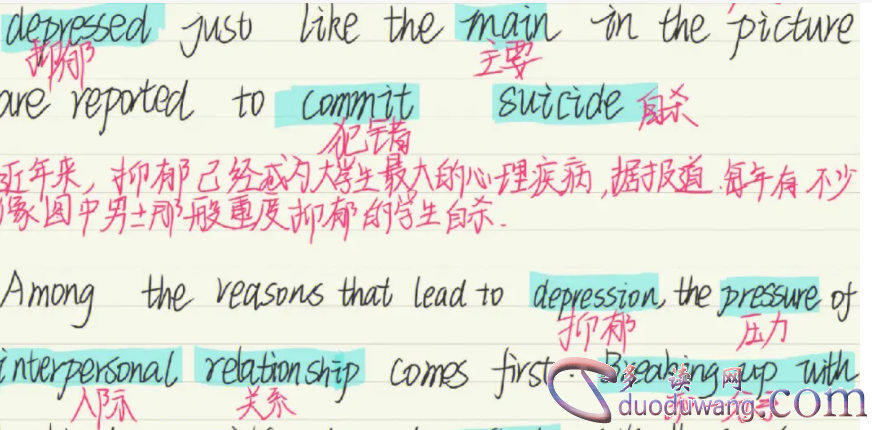 depressed just like the main in the picture
抑郁 主要
are reported to commit suicide 自杀
犯错
近年来,抑郁已经成为大学生最大的心理疾病,据报道.每年有不少
像图中男士那般重度抑郁的学生自杀.
Among the reasons that lead to depression, the pressure of
抑郁 压力
interpersonal relationship comes first. Breaking up with
人际 关系
多读网
duoduwang.com